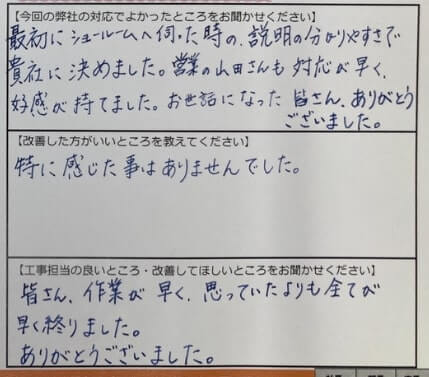 【今回の弊社の対応でよかったところをお聞かせください】
最初にショールームへ伺った時の、説明の分かりやすさで
貴社に決めました。営業の山田さんも対応が早く、
好感が持てました。お世話になった皆さん、ありがとう
ございました。
【改善した方がいいところを教えてください】
特に感じた事はありませんでした。
【工事担当の良いところ・改善してほしいところをお聞かせください】
皆さん、作業が早く、思っていたよりも全てが
早く終りました。
ありがとうございました。